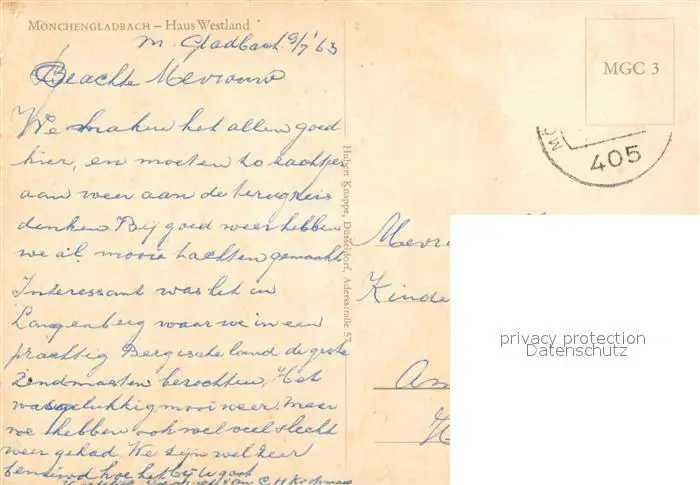 MÖNCHENGLADBACH – HAUS WESTLAND
M. Gladbach 9/7 '63
Geachte Mevrouw
We maken het allen goed
hier, en moeten zo zachtjes
aan weer aan de terugreis
denken. Bij goed weer hebben
we al mooie tochten gemaakt
Interessant was het in
Langenberg waar we in een
prachtig Bergische land de grote
Zendmasten bezochten. Het
was gelukkig mooi weer. Maar
we hebben ook wel veel slecht
weer gehad. We zijn wel zeer
benieuwd hoe het bij U gaat
van C H
Hubert Knappe, Düsseldorf, Adersstraße 57
MGC 3
405
Mevr
Kinde
Am
H
privacy protection
Datenschutz